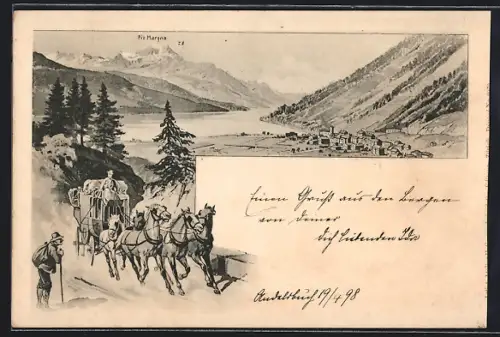 Piz Margna
Einen Gruß aus den Bergen
von Deiner
Dich liebenden Ida
Andelsbuch 19/4 98